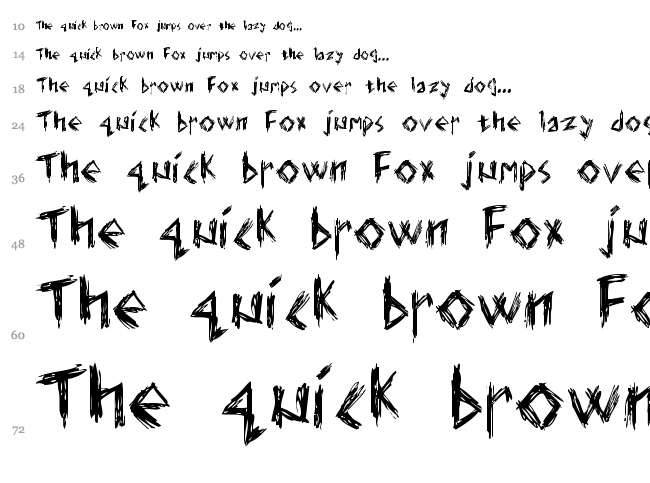 10 The quick brown Fox jumps over the lazy dog...
14 The quick brown Fox jumps over the lazy dog...
18 The quick brown Fox jumps over the lazy dog...
24 The quick brown Fox jumps over the lazy dog
36 The quick brown Fox jumps over
48 The quick brown Fox ju
60 The quick brown Fo
72 The quick brown